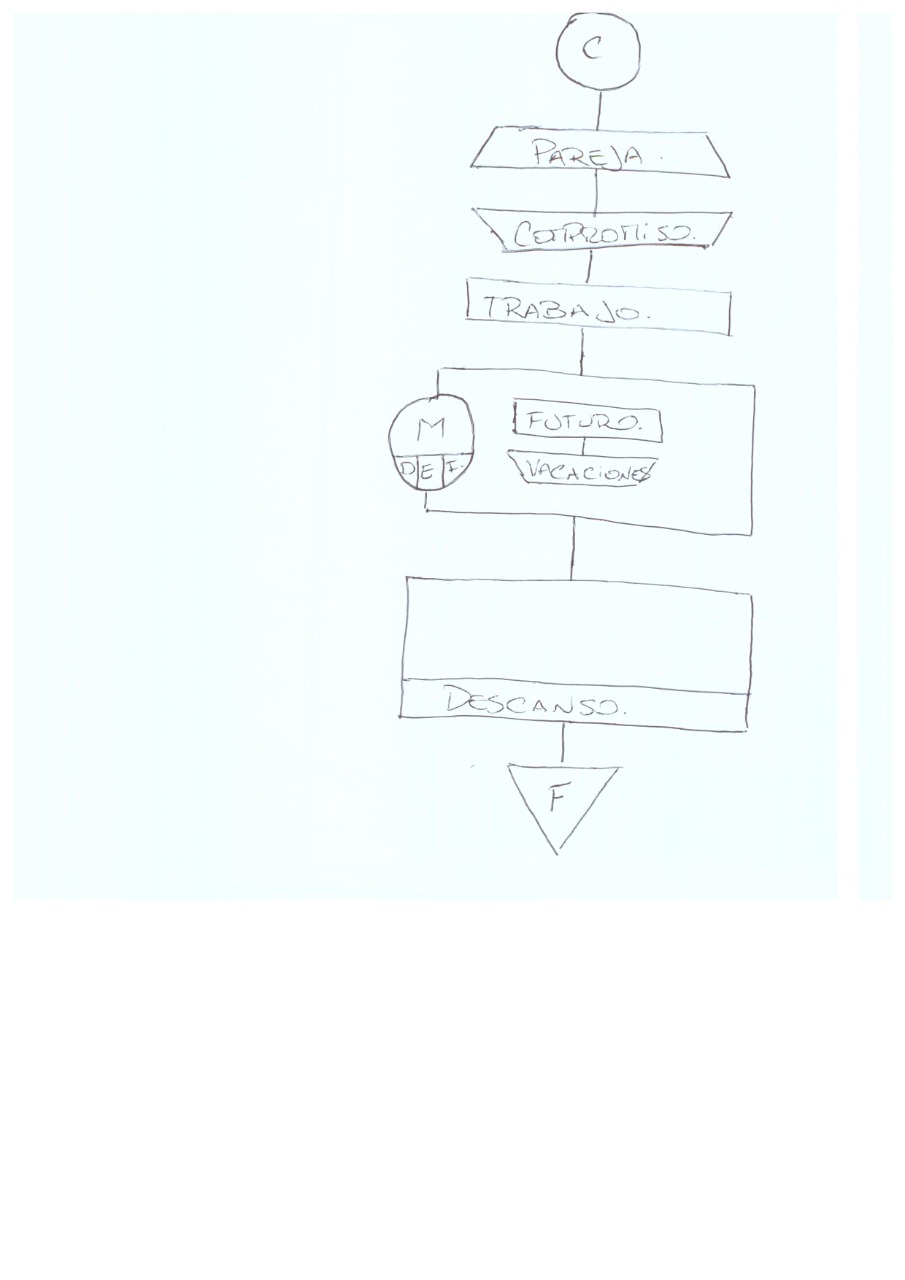 C
PAREJA.
COMPROMISO.
TRABAJO.
M
D E F.
FUTURO.
VACACIONES
DESCANSO.
F